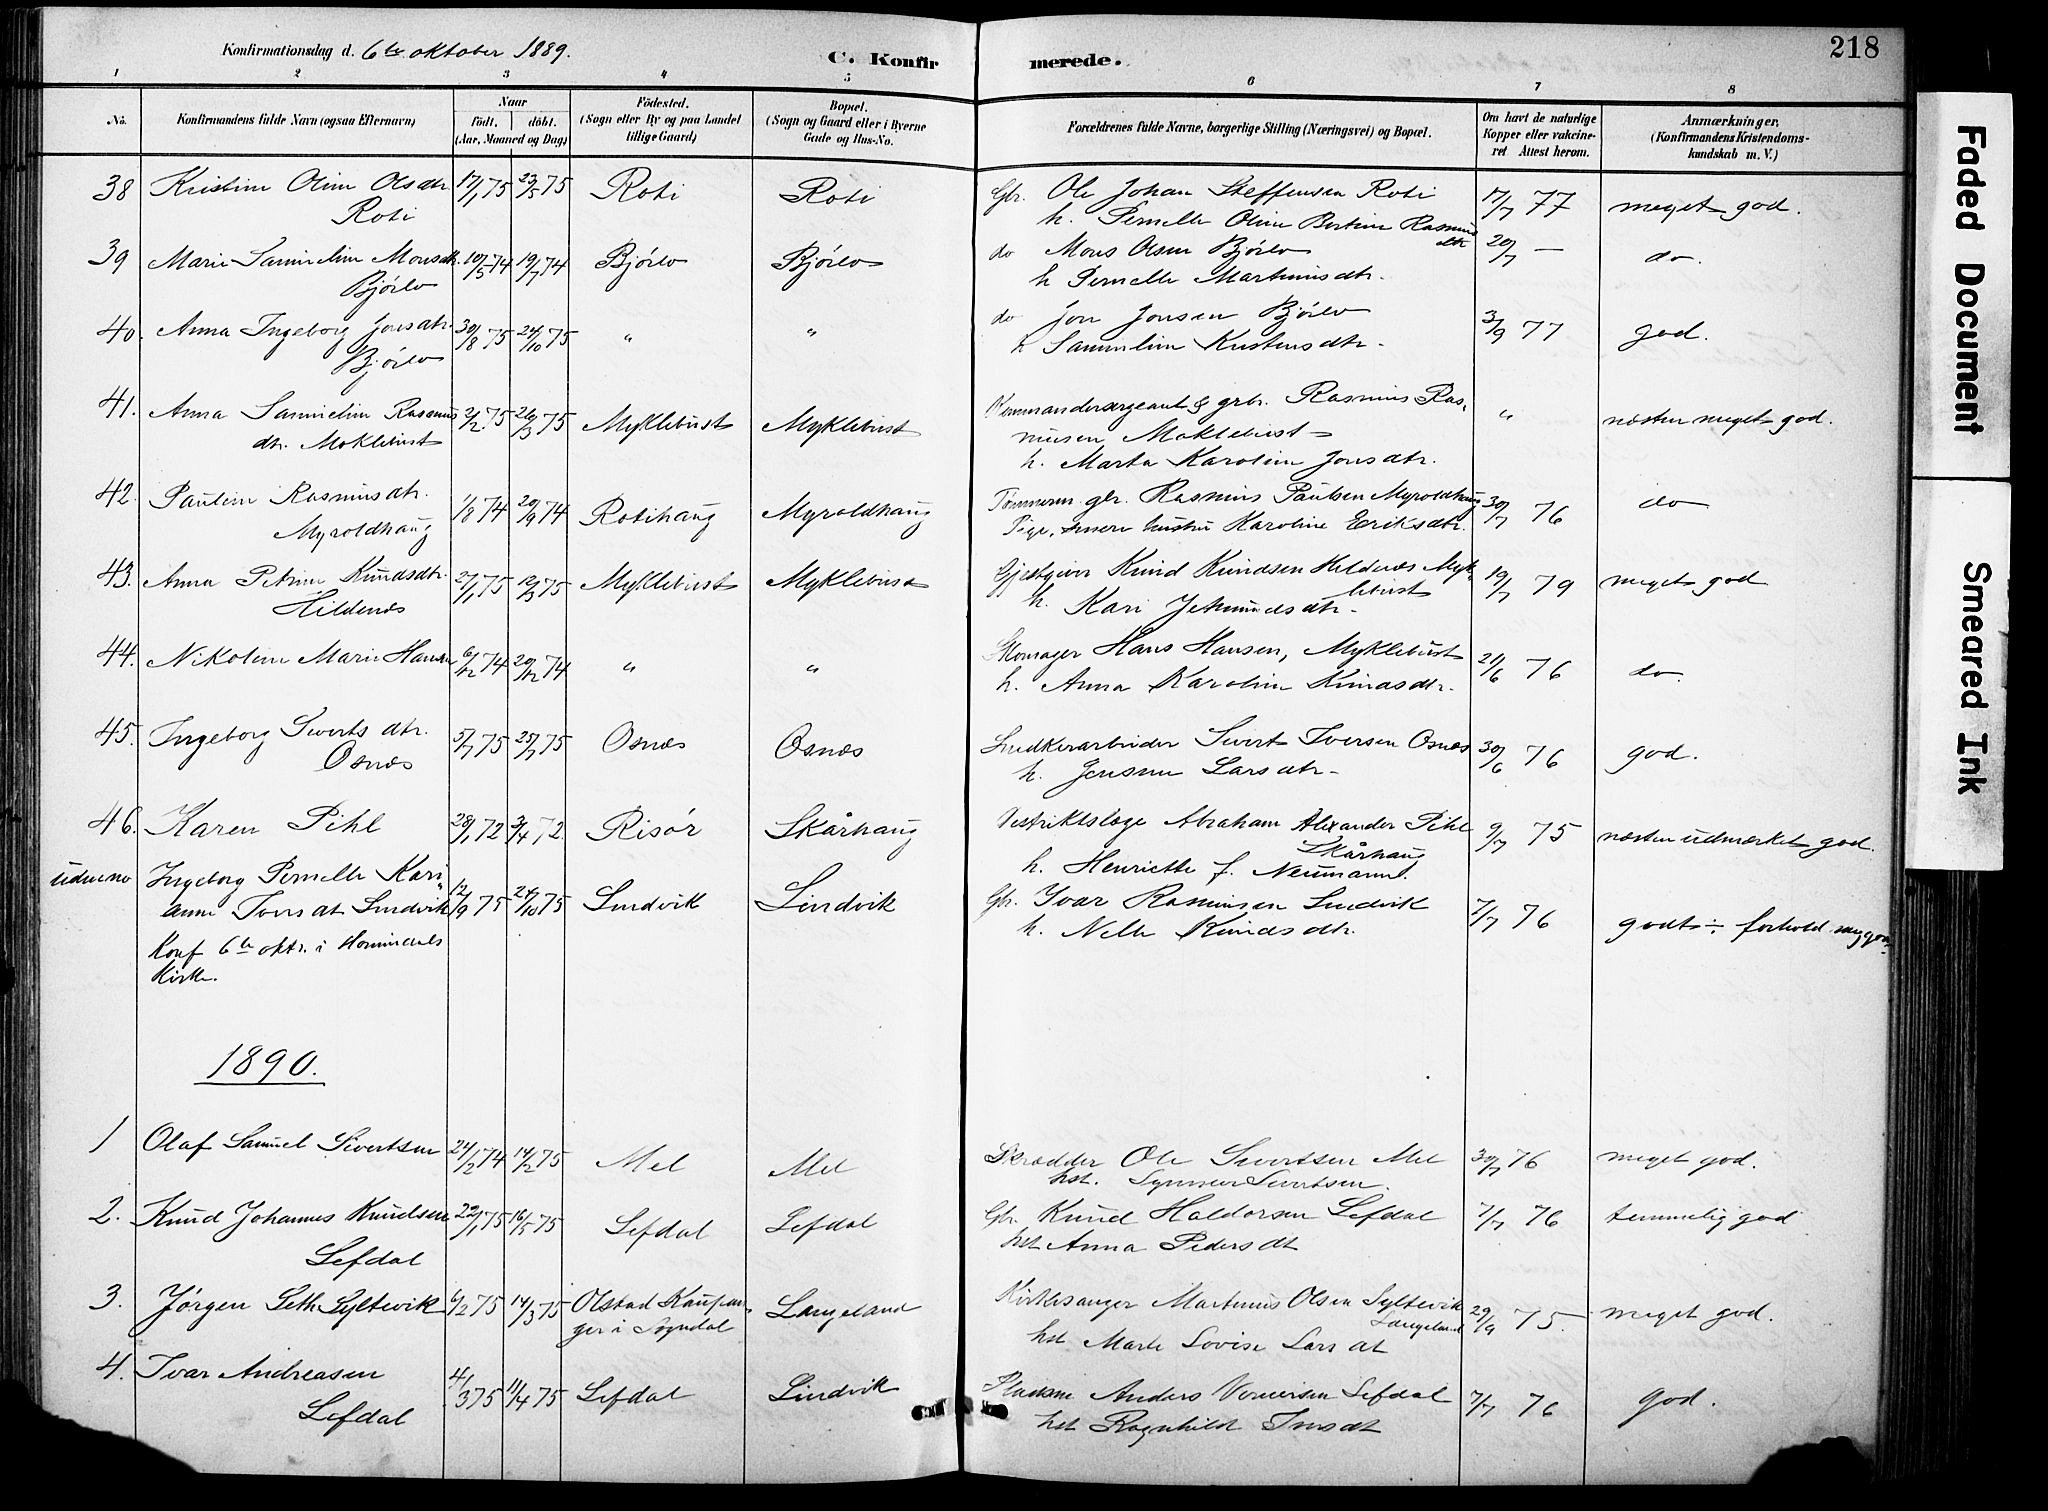 Konfirmationsdag d. 6te oktober 1889.
C. Konfirmerede.
218
1 2 3 4 5 6 7 8
No. Konfirmandens fulde Navn (ogsaa Efternavn) Naar født, døbt. (Aar, Maaned og Dag) Fødested. (Sogn eller By og paa Landet tillige Gaard) Bopæl. (Sogn og Gaard eller i Byerne Gade og Hus-No. Forældrenes fulde Navne, borgerlige Stilling (Næringsvei) og Bopæl. Om havt de naturlige Kopper eller vakcineret Attest herom. Anmærkninger. (Konfirmandens Kristendomskundskab m. V.)
38 Kristine Oline Olsdtr. 17/1 75 23/5 75 Roti Roti Gbr. Ole Johan Steffensen Roti 17/7 77 meget god.
Roti h. Pernelle Oline Bertine Rasmusdtr
39 Marie Samueline Monsdtr. 10/5 74 19/7 74 Bjørlo Bjørlo do Mons Olsen Bjørlo 20/7 — do.
Bjørlo h Pernelle Martinusdtr.
40. Anna Ingeborg Jonsdtr. 30/8 75 24/10 75 " " do Jon Jonsen Bjørlo 3/9 77 god.
Bjørlo h Samueline Kristensdtr.
41. Anna Samueline Rasmus 2/2 75 26/3 75 Myklebust Myklebust Kommandersergeant & grbr. Rasmus Ras, " næsten meget god.
dtr. Moklebust musen Moklebust
h. Marta Karoline Jonsdtr.
42. Pauline Rasmusdtr. 1/8 74 20/9 74 Rotihaug Myroldhaug Tømmerm gbr. Rasmus Paulsen Myroldhaug 30/7 76 do
Myroldhaug Pige, hustru Karoline Eriksdtr.
43. Anna Petrine Knudsdtr. 27/1 75 12/3 75 Myklebust Myklebust Gjestgiver Knud Knudsen Hildenæs Myk- 19/7 79 meget god
Hildenæs lebust
h. Kari Jetmundsdtr.
44. Nikoline Marie Hansen 6/12 74 20/12 74 " " Skomager Hans Hansen, Myklebust 21/6 76 do.
h. Anna Karoline Knudsdtr.
45. Ingeborg Sivertsdtr. 5/7 75 25/7 75 Osnæs Osnæs Snedkerarbeider Sivert Iversen Osnæs 30/6 76 god.
Osnæs h. Jensine Larsdtr.
46. Karen Pihl 28/1 72 3/4 72. Risør Skårhaug Distriktslæge Abraham Alexander Pihl 9/7 75 næsten udmærket god.
Skårhaug
h. Henriette f. Neumann.
Ingeborg Pernelle Kari- 12/9 75 24/10 75 Lindvik Lindvik Gbr. Ivar Rasmusen Lindvik 7/7 76 godt ÷ forhold
anne Iversdt Lindvik h. Nelle Knudsdtr.
Konf 6te oktr. i Hornindals
Kirke.
1890.
1 Olaf Samuel Sivertsen 24/12 74 14/2 75 Mel Mel Skrædder Ole Sivertsen Mel 30/7 76 meget god.
hst. Synneve Sivertsen.
2. Knud Johannes Knudsen 22/1 75 16/5 75 Lefdal Lefdal Gbr. Knud Haldorsen Lefdal 7/7 76 temmelig god
Lefdal hst Anna Pedersdt
3. Jørgen Seth Syltevik 6/2 75 14/3 75 Olstad Kaupan- Langeland Kirkesanger Martinus Olsen Syltevik 29/9 75. meget god.
ger i Sogndal Langeland
hst Marte Lovise Larsdt
4. Ivar Andreasen 4/3 75 11/4 75 Lefdal Lindvik Pladsm Anders Lefdal 7/7 76 god.
Lefdal hst Ragnhild
Faded Document
Smeared Ink